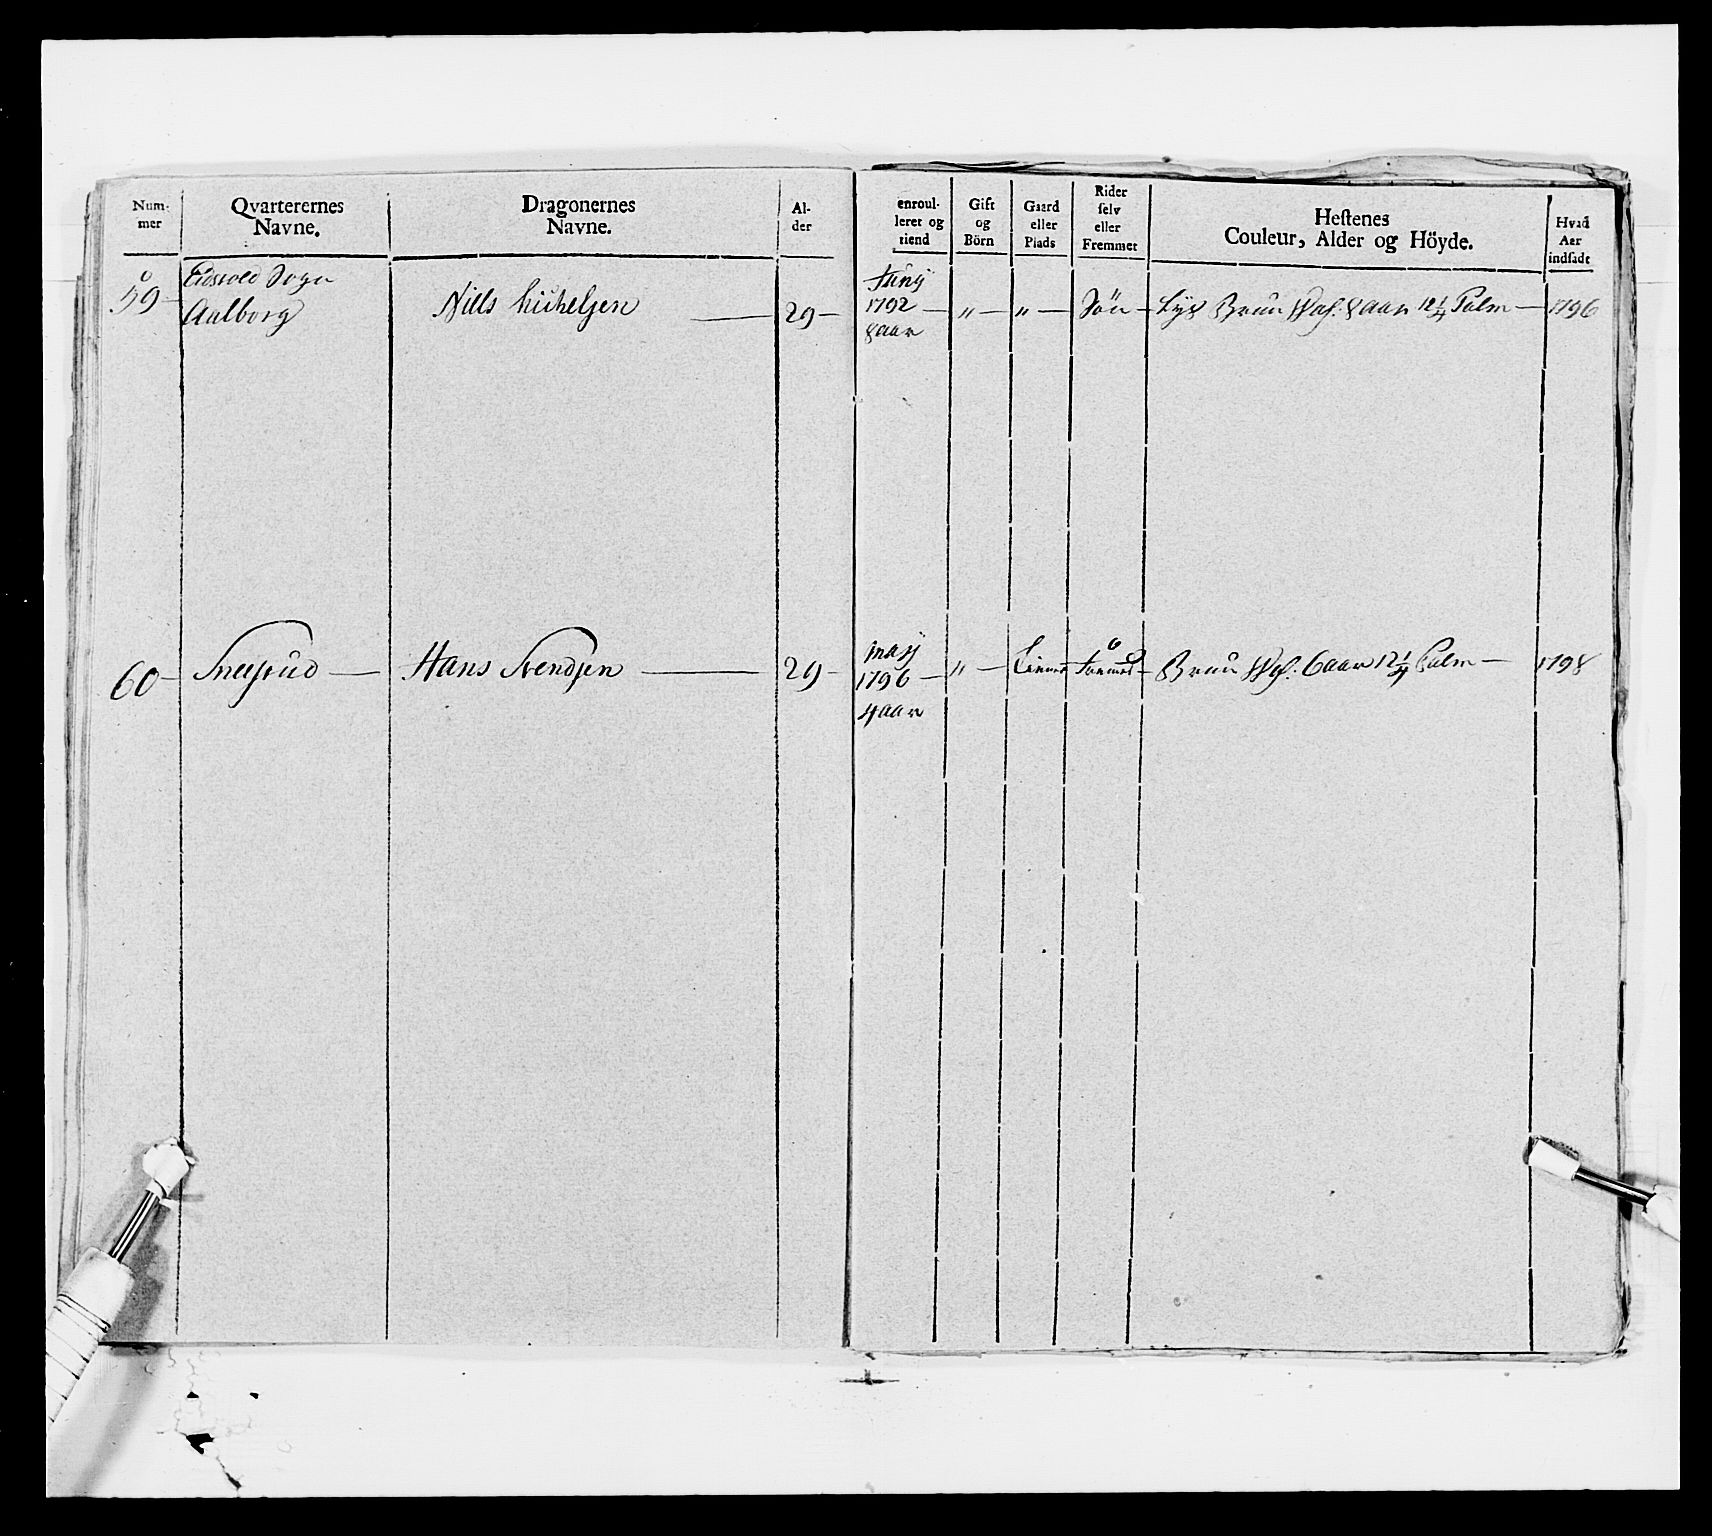 Num-
mer
Qvarterernes
Navne.
Dragonernes
Navne.
Al-
der
enroul-
leret og
tiend
Gift
og
Börn
Gaard
eller
Plads
Rider
selv
eller
Fremmet
Hestenes
Couleur, Alder og Höyde.
Hvad
Aar
indsadt
59 Eidsvold Sogn
Aalborg Niels Michelsen 29 Junij
1792
8 aar " " Sön Lys Bruun 8 aar 12¼ Palm 1796
60 Hans Svendsen 29 Maij
1796
4 aar " Bruun 6 aar 12¼ Palm 1798